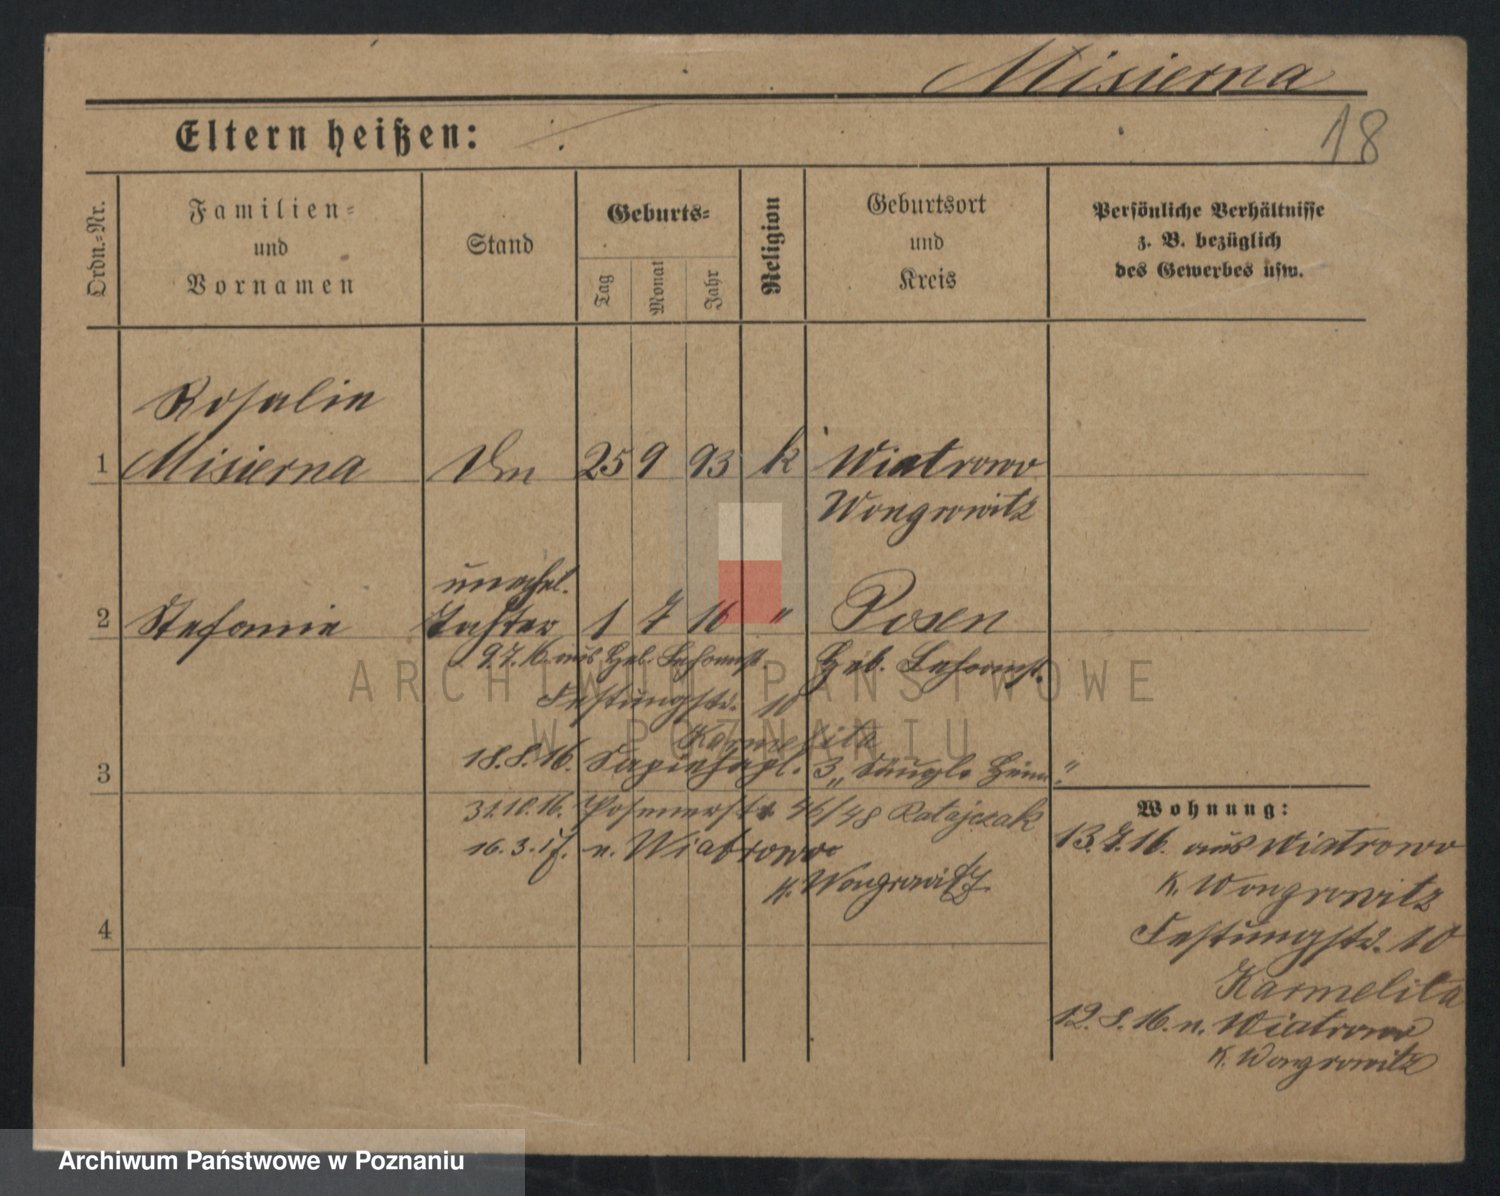 Misierna
Eltern heißen:
18
Ordn.=Nr.
Familien=
und
Vornamen
Stand
Geburts=
Tag
Monat
Jahr
Religion
Geburtsort
und
Kreis
Persönliche Verhältnisse
z. B. bezüglich
des Gewerbes usw.
Rosalie
1 Misierna 25 9 93 k Wiatrowo
Wongrowitz
unehel.
2 Stefanie Tochter 1 7 16 " Posen
9.7.16. aus Heb. Lehranst. Heb. Lehranst.
Festungstr. 10
Karmelita
3
18.8.16. Sapiehapl. 3 „Säugl. Heim"
31.10.16. Posenerstr 46/48 Ratajczak
16.3.17. n. Wiatrowo
K. Wongrowitz
4
Wohnung:
13.7.16. aus Wiatrowo
K. Wongrowitz
Festungstr. 10
Karmelita
12.8.16. n. Wiatrowo
K. Wongrowitz
ARCHIWUM PAŃSTWOWE
W POZNANIU
Archiwum Państwowe w Poznaniu